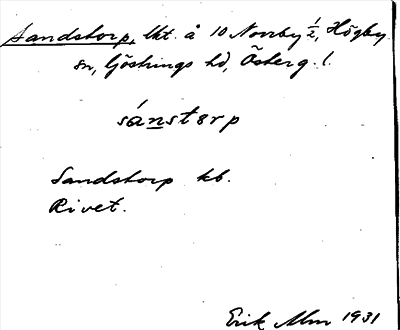 Sandstorp, lht. å 10 Norrby ½, Högby
sn, Göstrings hd, Österg. l.
sánstɵrp
Sandstorp kb.
Rivet.
Erik Alm 1931